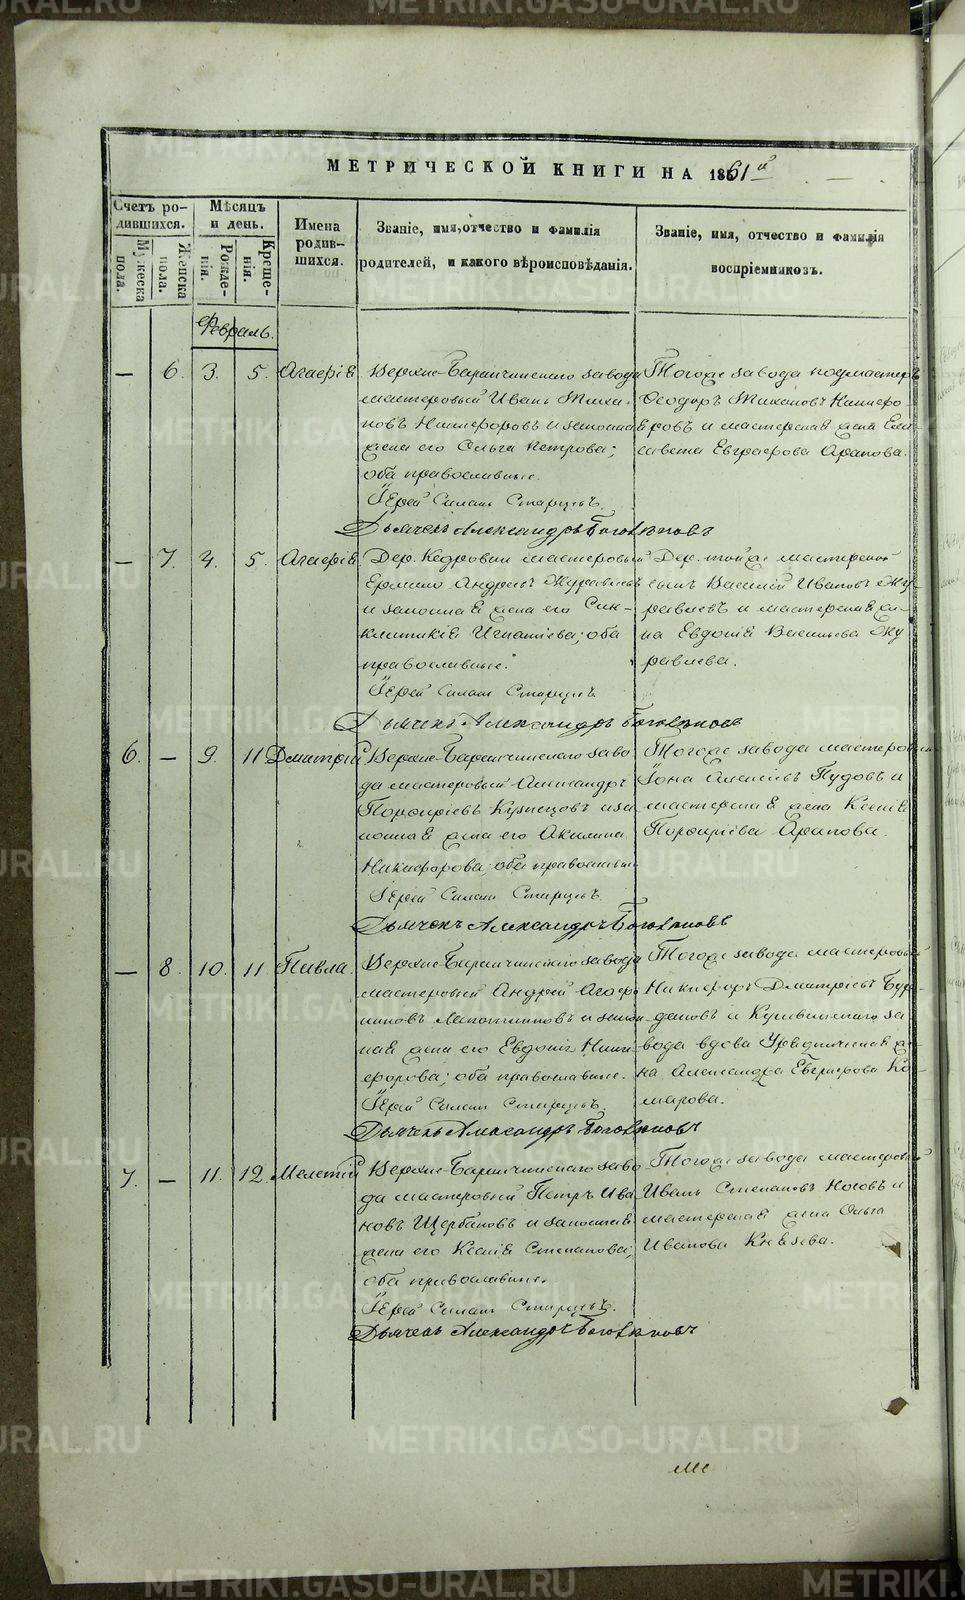 МЕТРИЧЕСКОЙ КНИГИ НА 1861й
Счетъ ро-
дившихся.
Мужеска
пола.
Женска
пола.
Мѣсяцъ
и день.
Рожде-
нія.
Креще-
нія.
Имена
родив-
шихся.
Званіе, имя, отчество и фамилія
родителей, и какого вѣроисповѣданія.
Званіе, имя, отчество и фамилія
воспріемниковъ.
Февраль.
— 6. 3. 5. Агафія
Верхне-Баранчинскаго завода
мастеровый Иванъ Тиха-
новъ Никифоровъ и законная
жена его Ольга Петрова;
оба православные.
Іерей Симеонъ Старцевъ.
Дьячекъ Александръ Боголѣповъ
Тогоже завода подмастеръ
Ѳеодоръ Тихановъ Никифо-
ровъ и мастерская жена Ели-
савета Евграфова Арапова.
— 7. 4. 5. Агафія
Дер. Кедровки мастеровый
Ермилъ Андреевъ Журавлевъ
и законная жена его Син-
клитикія Игнатіева; оба
православные.
Іерей Симеонъ Старцевъ
Дьячекъ Александръ Боголѣповъ
Дер. тойже мастерской
сынъ Василій Ивановъ Жу-
равлевъ и мастерская же-
на Евдокія Васильева Жу
равлева.
6. — 9. 11 Дмитрій
Верхне-Баранчинскаго заво
да мастеровый Александръ
Порфиріевъ Кузнецовъ и за
конная жена его Акилина
Никифорова; оба православные
Іерей Симеонъ Старцевъ.
Дьячекъ Александръ Боголѣповъ
Тогоже завода мастеровый
Іона Алексѣевъ Пудовъ и
мастерская жена Ксенія
Порфиріева Арапова.
— 8. 10. 11 Павла.
Верхне-Баранчинскаго завода
мастеровый Андрей Агафо
новъ Лапотниковъ и закон-
ная жена его Евдокія Ники-
форова; оба православные.
Іерей Симеонъ Старцевъ.
Дьячекъ Александръ Боголѣповъ
Тогоже завода мастеровый
Никифоръ Дмитріевъ Бур-
даковъ и Кушвинскаго за
вода вдова Урядничья же-
на Александра Евграфова Ко-
марова.
7. — 11. 12. Мелетій
Верхне-Баранчинскаго заво
да мастеровый Петръ Ива
новъ Щербаковъ и законная
жена его Ксенія Степанова;
оба православные.
Іерей Симеонъ Старцевъ.
Дьячекъ Александръ Боголѣповъ
Тогоже завода мастеровый
Иванъ Степановъ Носовъ и
мастерская жена Ольга
Иванова Князева.
METRIKI.GASO-URAL.RU